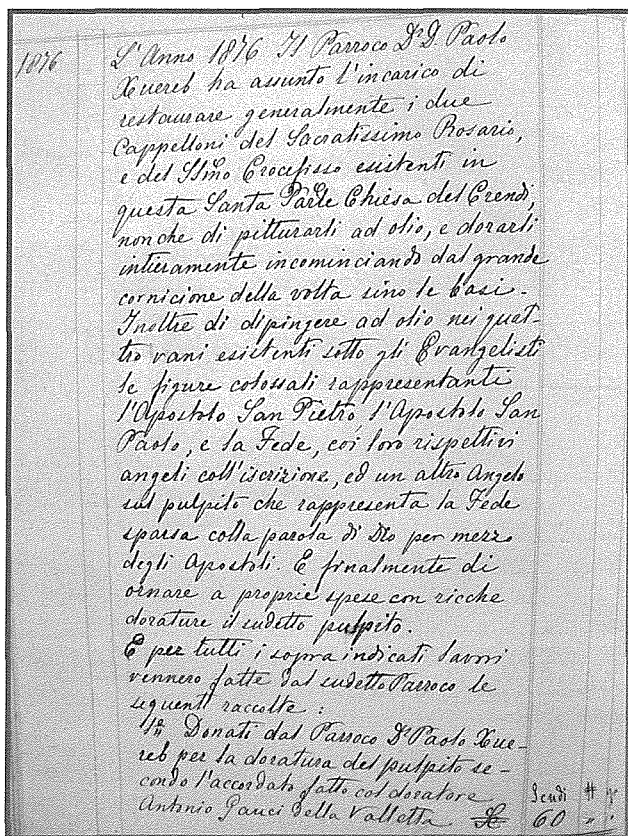 1876
L'Anno 1876 Il Parroco Dr. D. Paolo
Xuereb ha assunto l'incarico di
restaurare generalmente i due
Cappelloni del Sacratissimo Rosario,
e del SSmo Crocefisso esistenti in
questa Santa Parle Chiesa del Crendi,
nonche di pitturarli ad olio, e dorarli
intieramente incominciando dal grande
cornicione della volta sino le basi.
Inoltre di dipingere ad olio nei quat-
tro vani esistenti sotto gli Evangelisti
le figure colossali rappresentanti
l'Apostolo San Pietro, l'Apostolo San
Paolo, e la Fede, coi loro rispettivi
angeli coll'iscrizione, ed un altro Angelo
sul pulpito che rappresenta la Fede
sparsa colla parola di Dio per mezzo
degli Apostoli. E finalmente di
ornare a proprie spese con ricche
dorature il sudetto pulpito.
E per tutti i sopra indicati lavori
vennero fatte dal sudetto Parroco le
seguenti raccolte:
1a Donati dal Parroco Dr. Paolo Xue-
reb per la doratura del pulpito se-
condo l'accordato fatto col doratore
Antonio Gauci della Valletta
Scudi
60 "